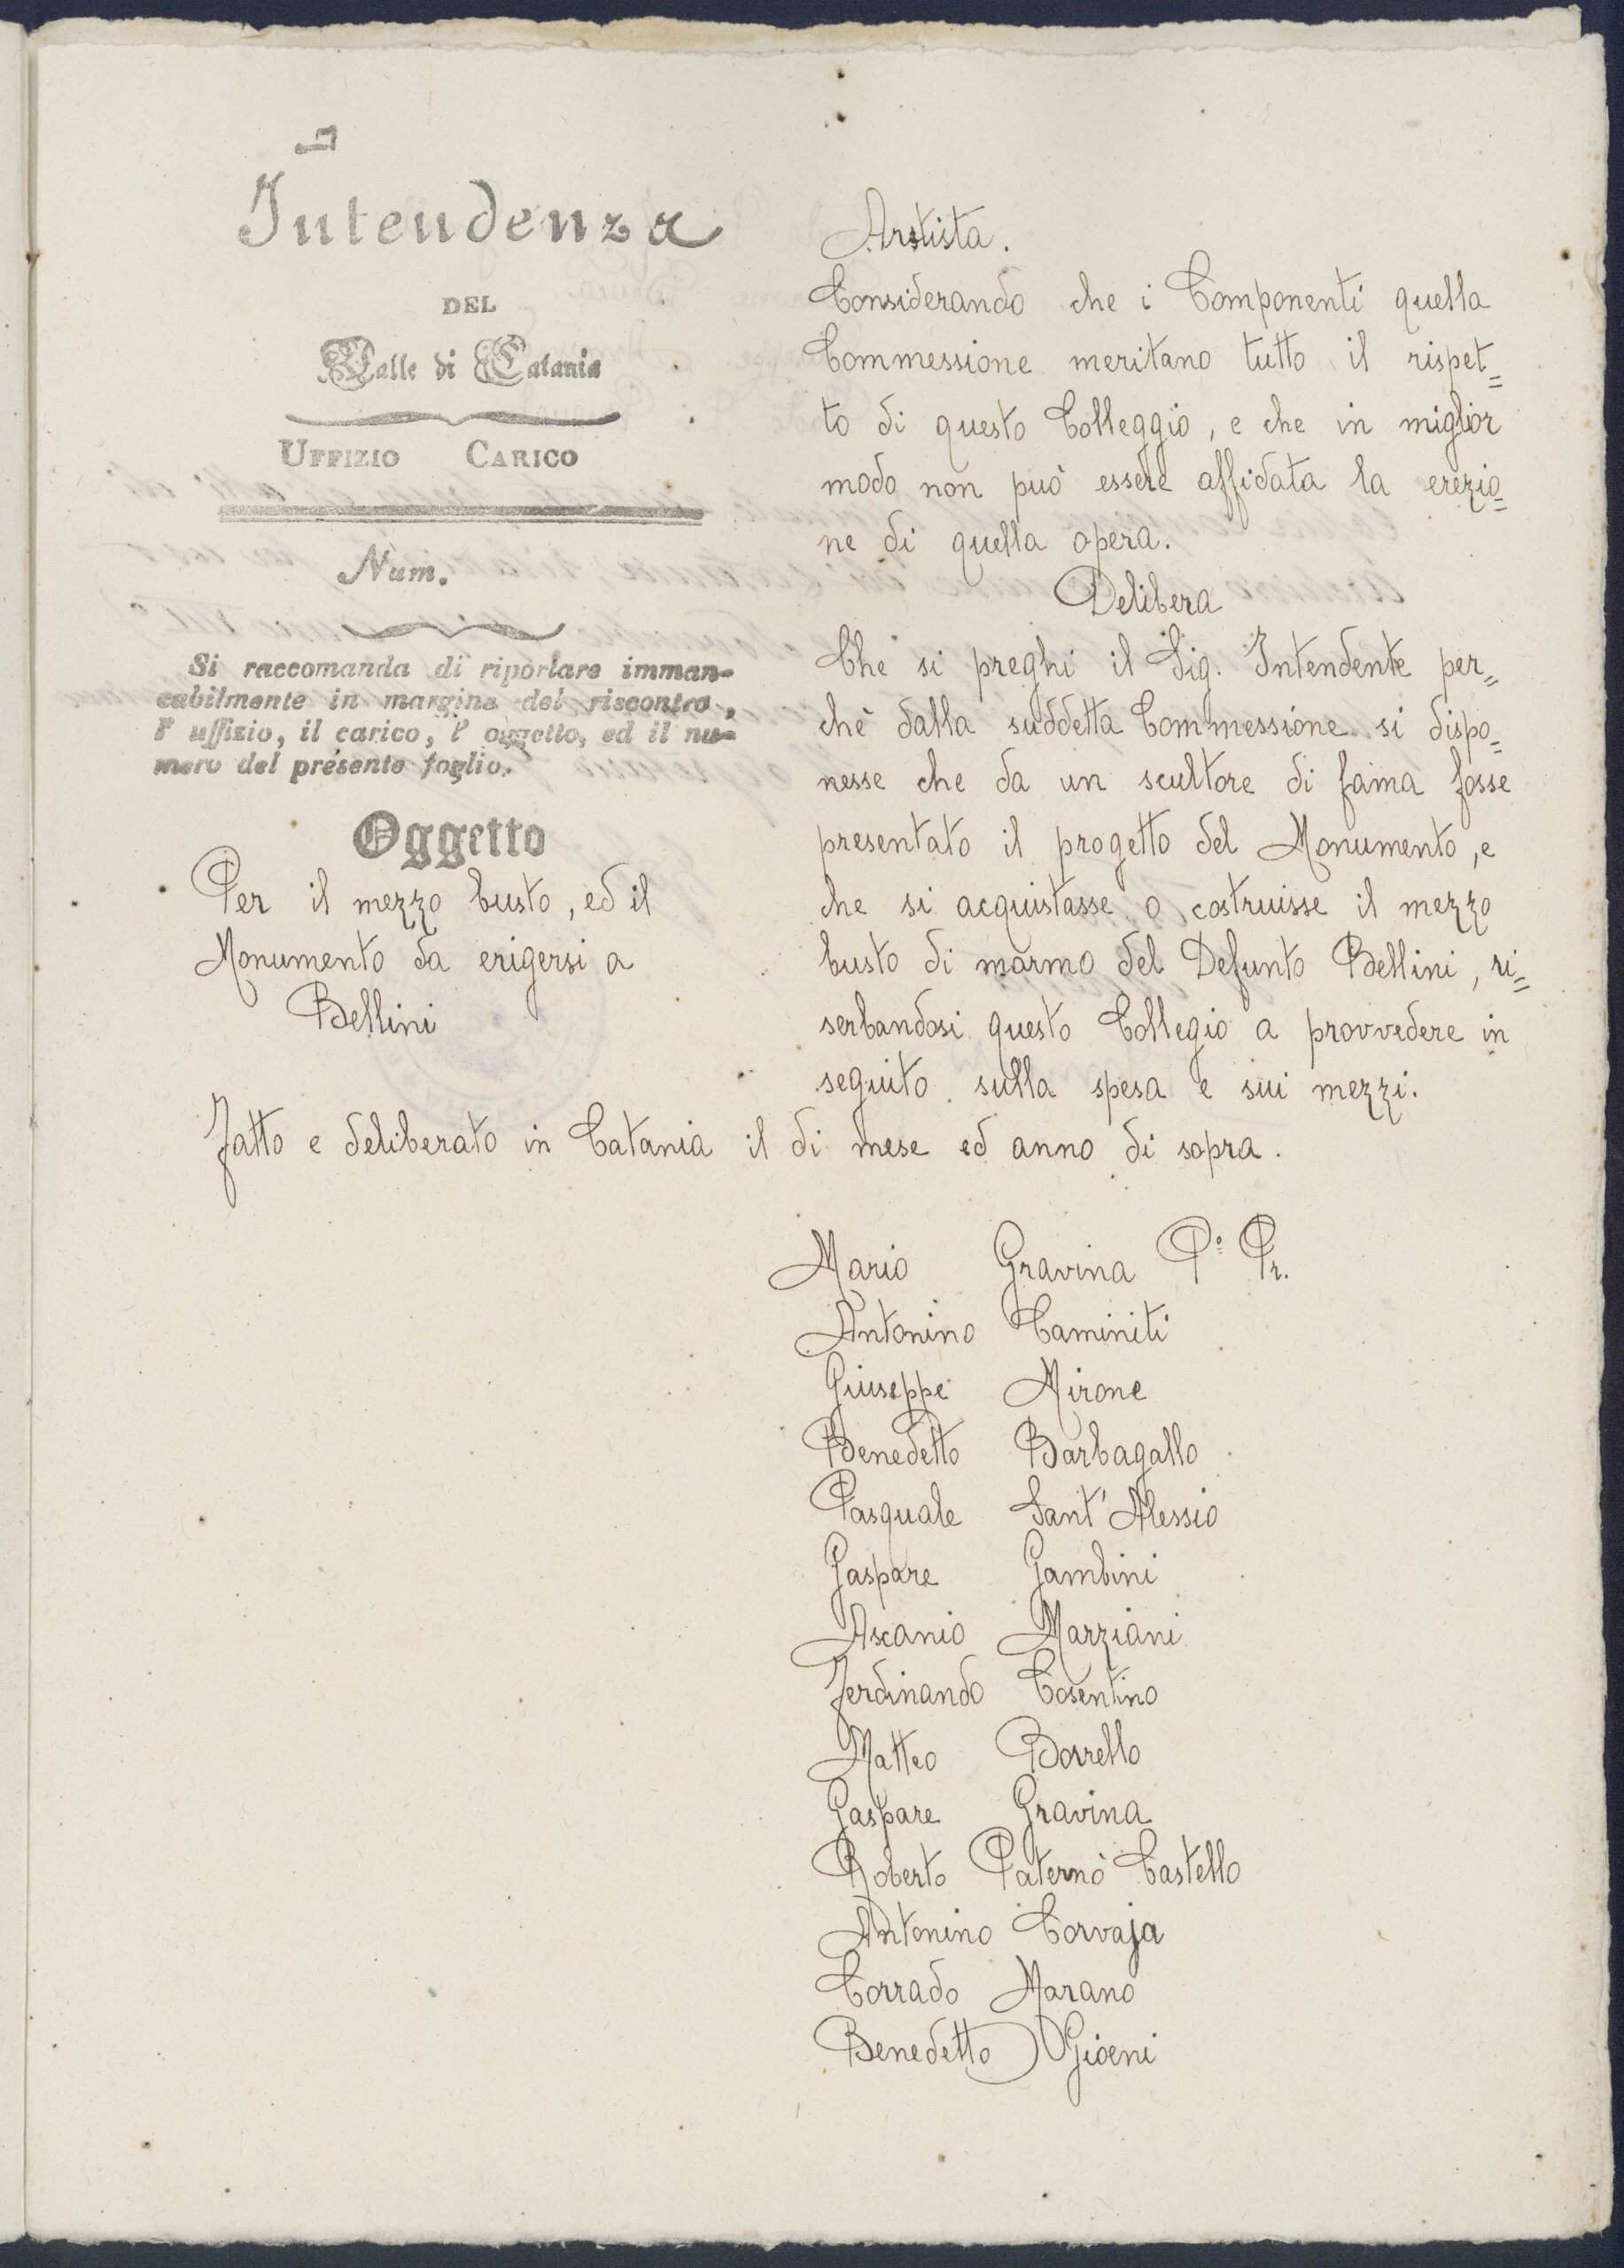 Intendenza
DEL
Valle di Catania
UFFIZIO CARICO
Num.
Si raccomanda di riportare imman-
cabilmente in margine del riscontro,
l' uffizio, il carico, l' oggetto, ed il nu-
mero del presente foglio.
Oggetto
Per il mezzo busto, ed il
Monumento da erigersi a
Bellini
Artista.
Considerando che i Componenti quella
Commessione meritano tutto il rispet=
to di questo Colleggio, e che in miglior
modo non può essere affidata la erezio=
ne di quella opera.
Delibera
Che si preghi il Sig. Intendente per=
chè dalla suddetta Commessione si dispo=
nesse che da un scultore di fama fosse
presentato il progetto del Monumento, e
che si acquistasse o costruisse il mezzo
busto di marmo del Defunto Bellini, ri=
serbandosi questo Collegio a provvedere in
seguito sulla spesa e sui mezzi.
Fatto e deliberato in Catania il di mese ed anno di sopra.
Mario Gravina P.º Pr.
Antonino Caminiti
Giuseppe Mirone
Benedetto Barbagallo
Pasquale Sant'Alessio
Gaspare Gambini
Ascanio Marziani
Ferdinando Cosentino
Matteo Borrello
Gaspare Gravina
Roberto Paternò Castello
Antonino Corvaja
Corrado Marano
Benedetto Gioeni